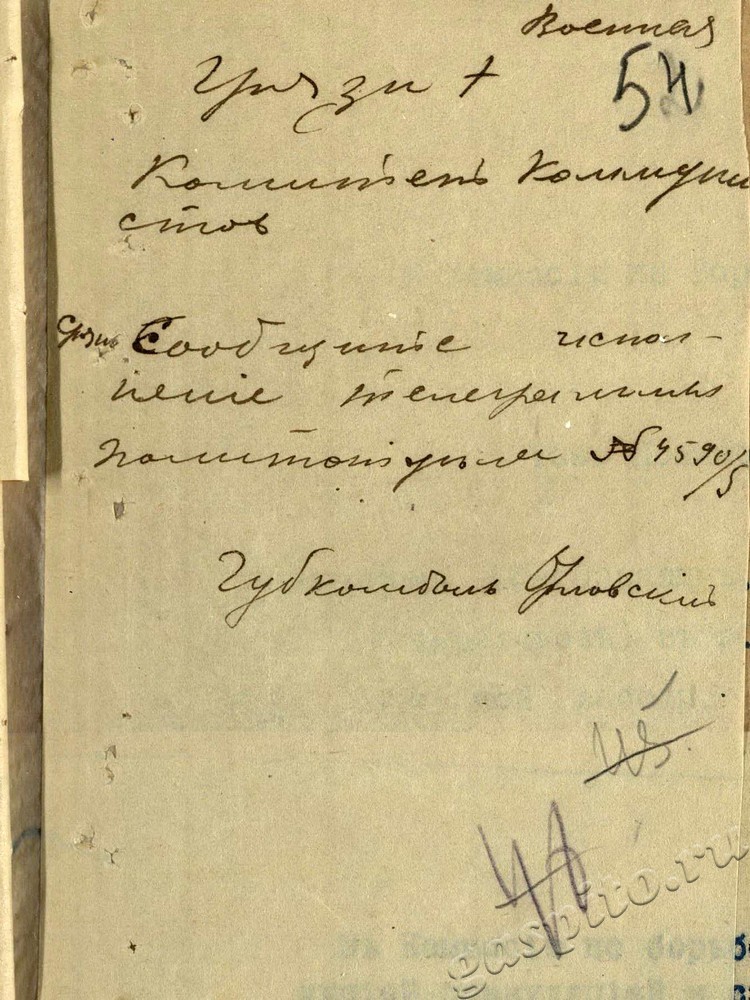 Военная
Грязи +
54
Комитетъ Коммуни
стов
Срочн Сообщите испол-
неніе телеграммы
политотдела № 4590/5
Губкомболь Орловскій
gaspito.ru